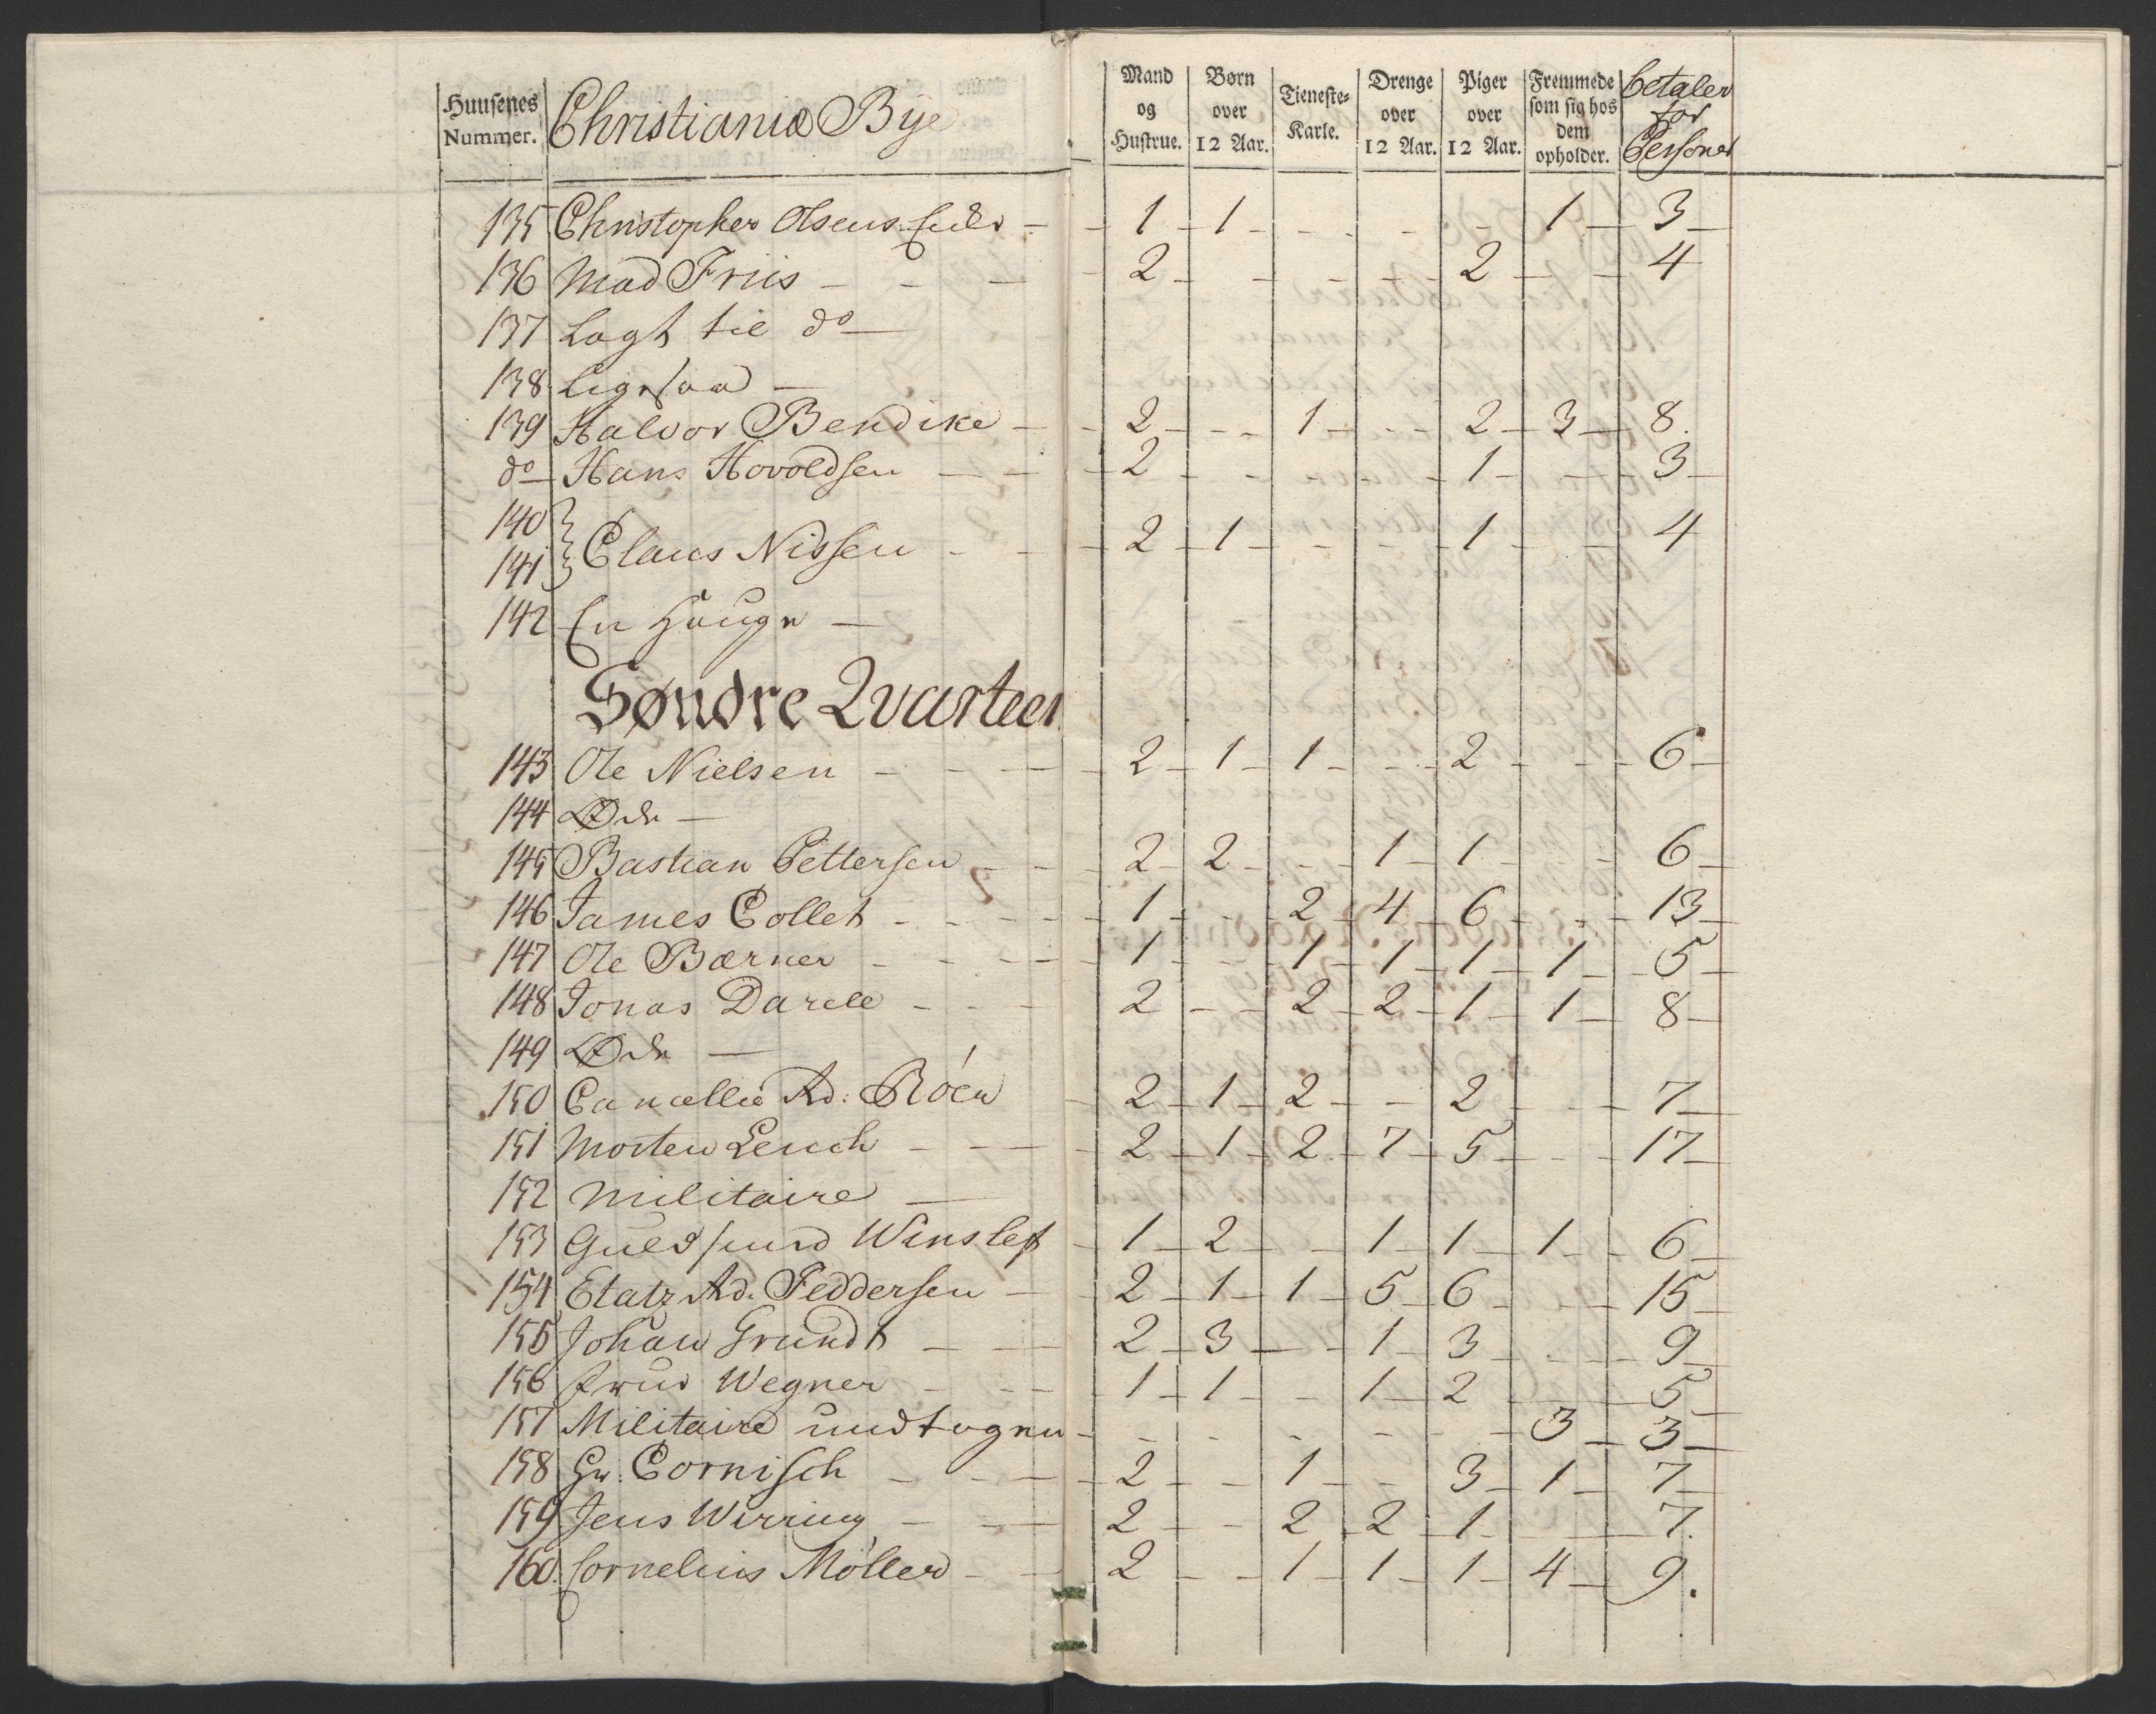 Huusenes Nummer. Christiania Bÿe Mand og Hustrue. Børn over 12 Aar. Tieneste-Karle. Drenge over 12 Aar. Piger over 12 Aar. Fremmede som sig hos dem opholder. betaler for Personer
135 Christopher Olsens Encke - 1 1 1 3
136 Mad Friis - 2 2 4
137 Lagt til do
138 Ligesaa
139 Halvor Bendike - 2 1 2 3 8.
do Hans Hovoldsen - 2 1 3
140
141 Claus Nissen - 2 1 1 4
142 En Hauge
Søndre Qvarteer
143 Ole Nielsen - 2 1 1 2 6
144 Øde
145 Bastian Pettersen - 2 2 1 1 6
146 James Collet - 1 2 4 6 13
147 Ole Bærner - 1 1 1 1 1 5
148 Jonas Darell - 2 2 2 1 1 8
149 Øde
150 Cancellie Rd: Röen 2 1 2 2 7
151 Morten Leuch - 2 1 2 7 5 17
152 Militaire
153 Guldsmed Wensle 1 2 1 1 1 6
154 Etatz Rd. Feddersen - 2 1 1 5 6 15
155 Johan Grundt - 2 3 1 3 9
156 Frue Wegner - 1 1 1 2 5
157 Militaire undtagen - 3 3
158 Hr. Cornisch - 2 1 3 1 7
159 Jens Wirring - 2 2 2 1 7.
160. Cornelius Möller - 2 1 1 1 4 9.